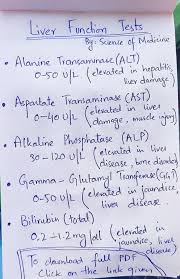 Liver Function Tests
By: Science of Medicine
• Alanine Transaminase (ALT)
0-50 U/L (elevated in hepatitis,
liver damage)
• Aspartate Transaminase (AST)
1-40 U/L (elevated in liver
damage, muscle injury)
• Alkaline Phosphatase (ALP)
30-120 U/L (elevated in liver
disease, bone disorders)
• Gamma-Glutamyl Transferase (GGT)
0-50 U/L (elevated in jaundice,
liver disease.
• Bilirubin (total)
0.2-1.2 mg/dl (elevated in
jaundice, liver
disease)
To download full PDF
Click on the link given